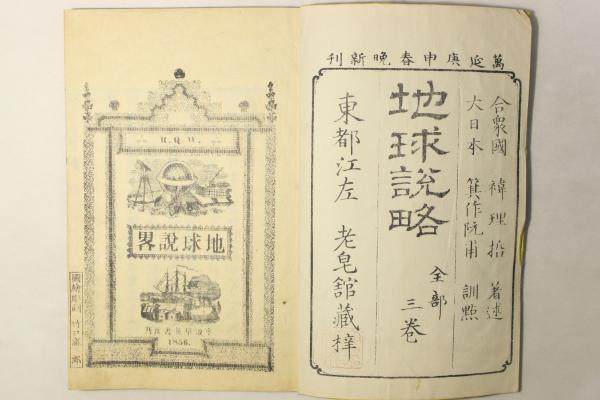 萬延庚申春晚新刊
合衆國 褘理哲 著述
大日本 箕作阮甫 訓點
地球説略
全部
三巻
東都江左 老皂館藏梓
R.Q.W.
地球說畧
1856.